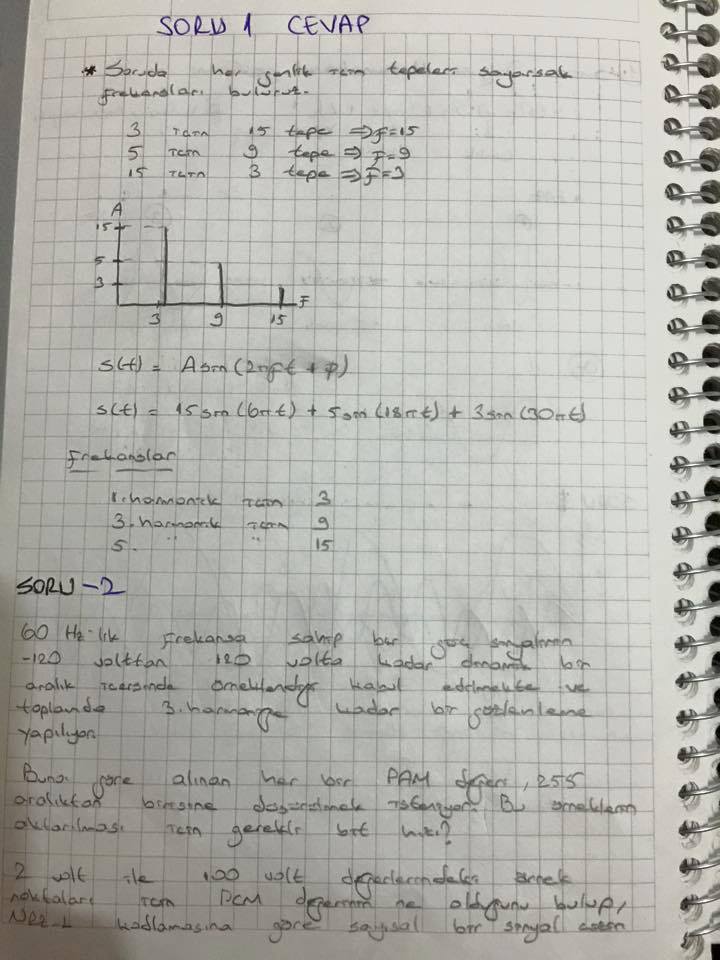 SORU 1 CEVAP
* Soruda her genlik icin tepeleri sayarsak
frekansları buluruz.
3 icin 15 tepe ⇒ f=15
5 icin 9 tepe ⇒ f=9
15 icin 3 tepe ⇒ f=3
A
15
5
3
F
3 9 15
s(t) = A sin(2πft + φ)
s(t) = 15 sin(6πt) + 5 sin(18πt) + 3 sin(30πt)
Frekanslar
1. harmonik icin 3
3. harmonik icin 9
5. " " 15
SORU -2
60 Hz-lik frekansa sahip bir güç sinyalinin
-120 volttan 120 volta kadar dinamik bir
aralık icersinde örneklendiği kabul edilmekte ve
toplamda 3. harmoniğe kadar bir gözlemleme
yapılıyor.
Buna göre alınan her bir PAM değeri, 255
aralıktan birisine düşürülmek isteniyor. Bu örneklerin
aktarılması icin gerekli bit hızı?
2 volt ile 100 volt değerlerindeki örnek
noktaları icin PCM değerinin ne olduğunu bulup,
NRZ-L kodlamasına göre sayısal bir sinyal